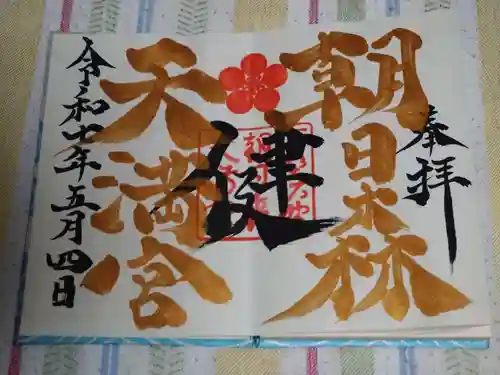 奉拝
朝日森
天満宮
令和七年五月四日